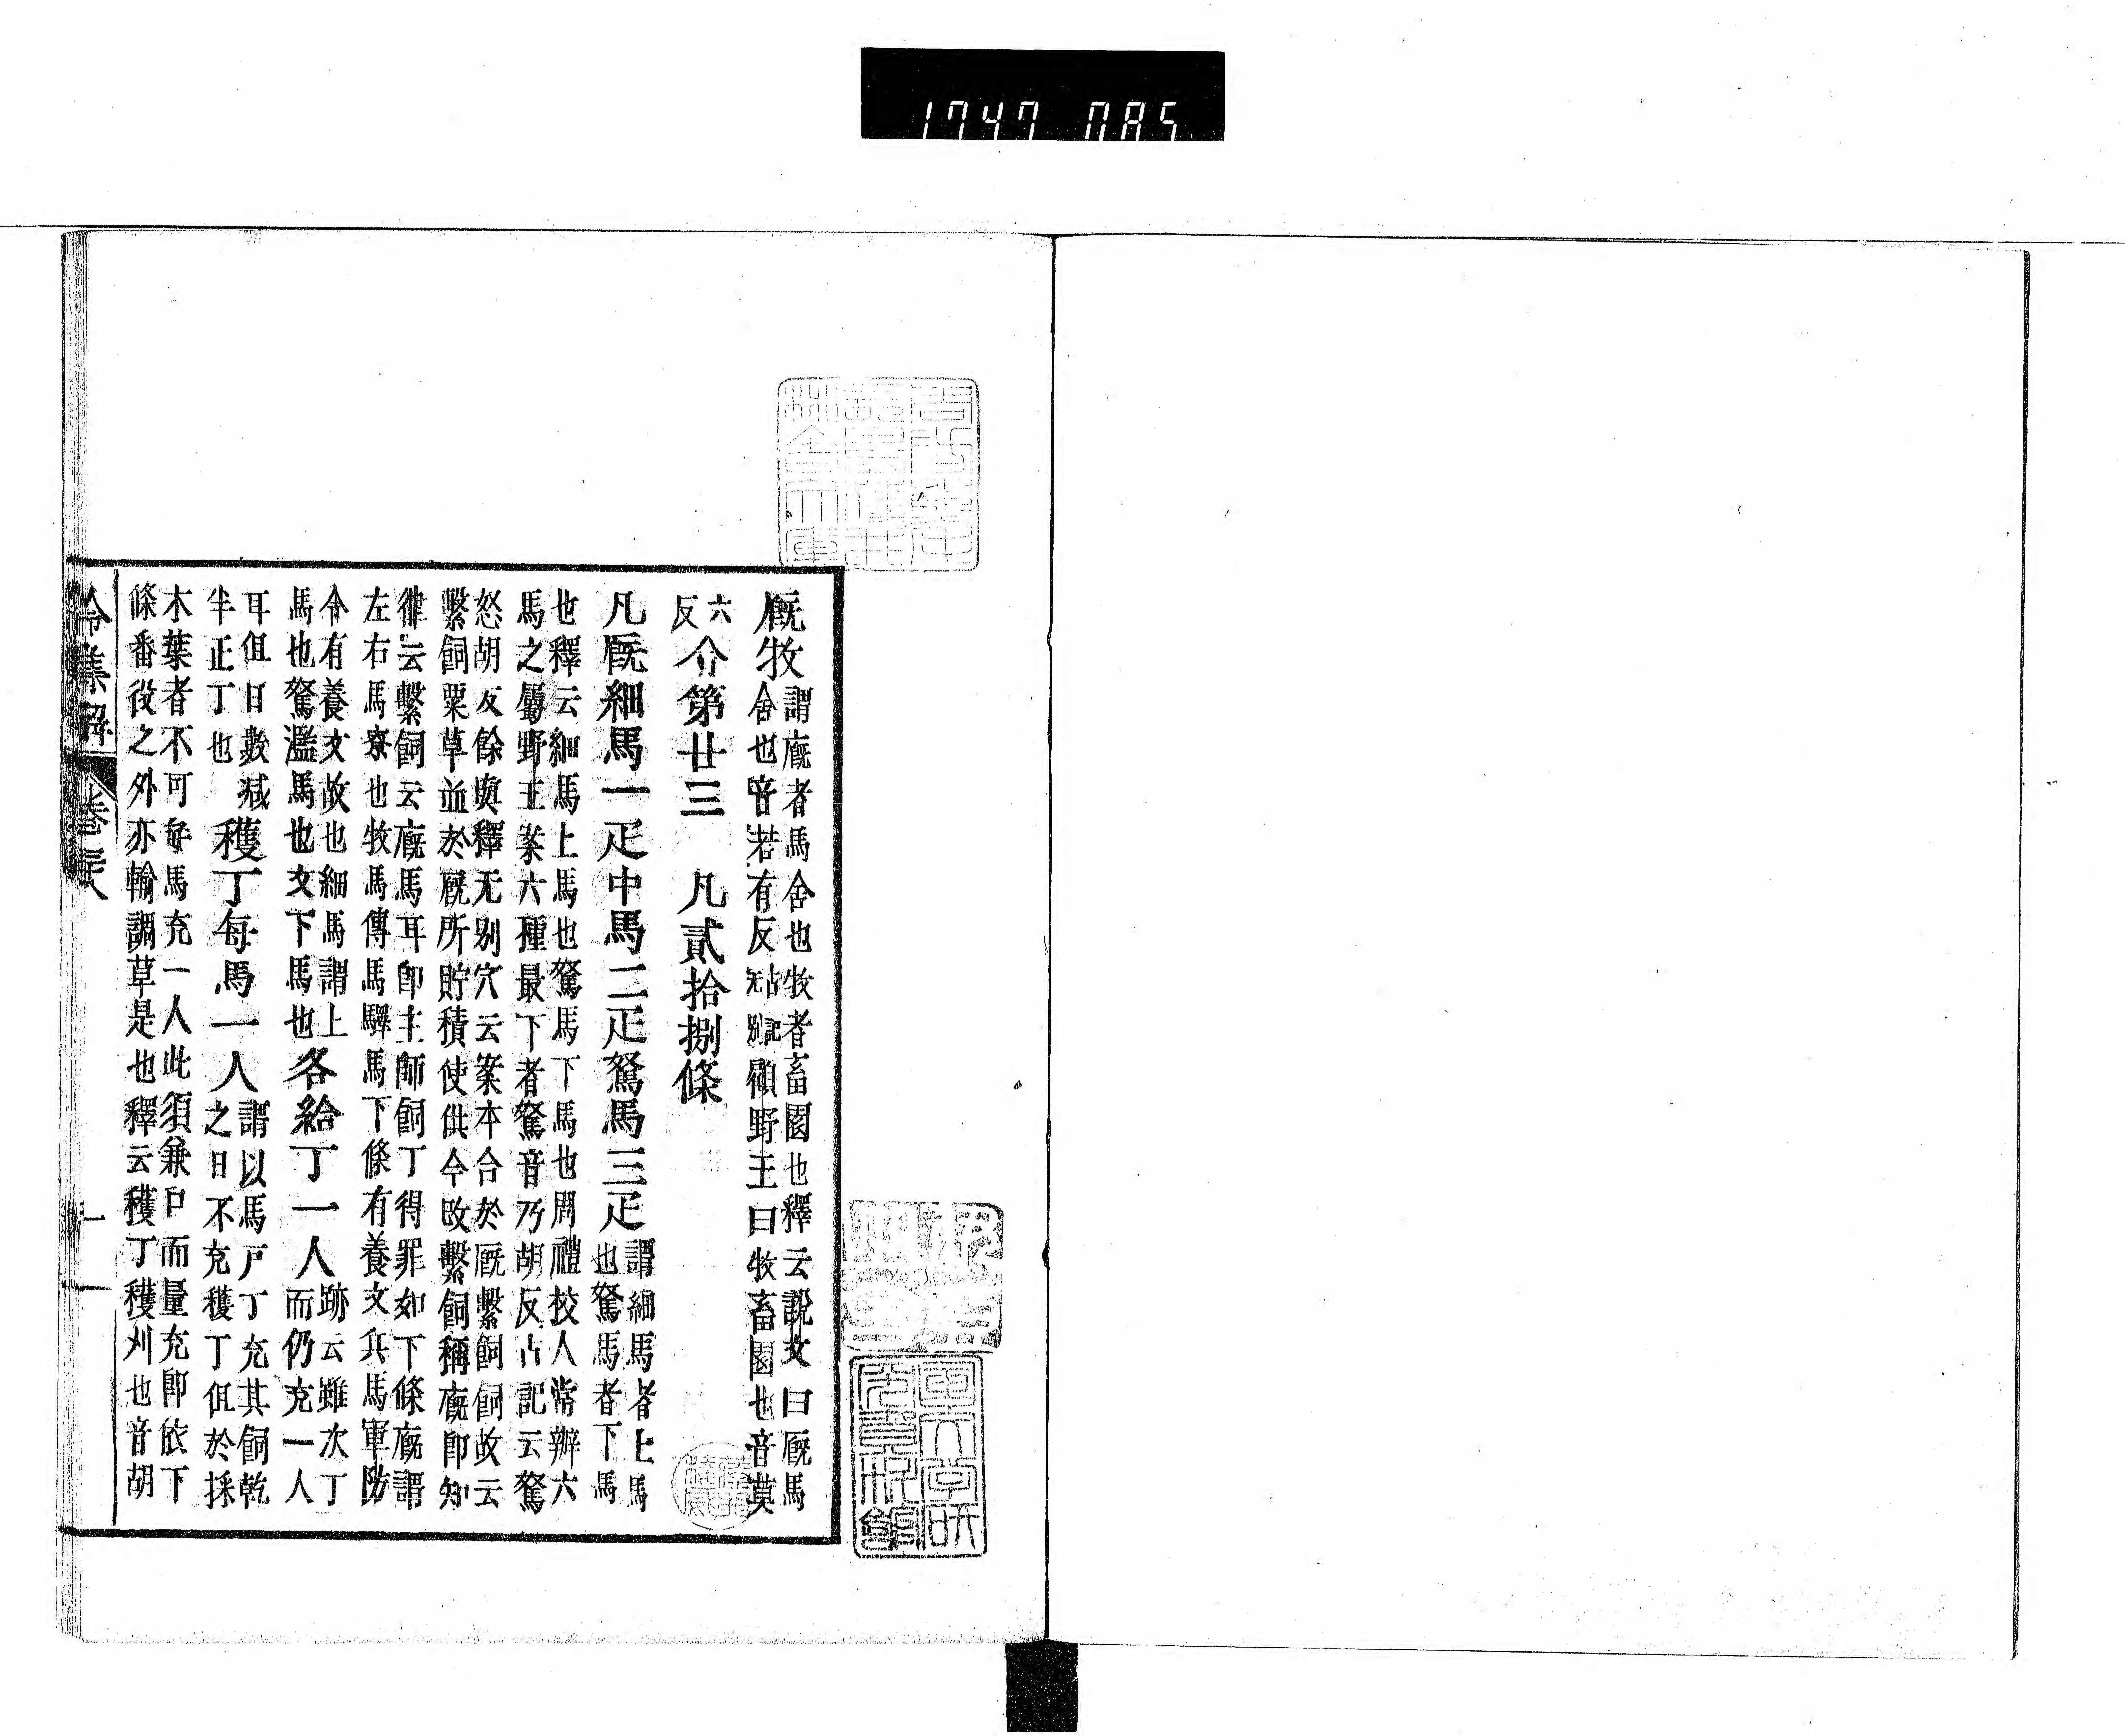 1747 085
厩牧
謂廐者馬舍也牧者畜園也釋云説文曰厩馬
舍也音若有反古記无別顧野王曰牧畜園也音莫
六
反
令第廿三 凡貳拾捌條
凡厩細馬一疋中馬二疋駑馬三疋
謂細馬者上馬
也駑馬者下馬
也釋云細馬上馬也駑馬下馬也周禮校人常辨六
馬之屬野王案六種最下者駑音乃胡反古記云駑
怒胡反餘與釋无別穴云案本令於厩繫飼飼故云
繫飼粟草並於厩所貯積使供今改繫飼稱廐即知
律云繫飼云廐馬耳卽主師飼丁得罪如下條廐謂
左右馬寮也牧馬傳馬驛馬下條有養文兵馬軍防
令有養文故也細馬謂上
馬也駑濫馬也文下馬也
各給丁一人
跡云雖次丁
而仍充一人
耳但日數减
半正丁也
穫丁每馬一人
謂以馬戸丁充其飼乾
之日不充穫丁但於採
木葉者不可每馬充一人此須兼口而量充卽依下
條番役之外亦輸調草是也釋云穫丁穫刈也音胡
令集解 卷三八 一